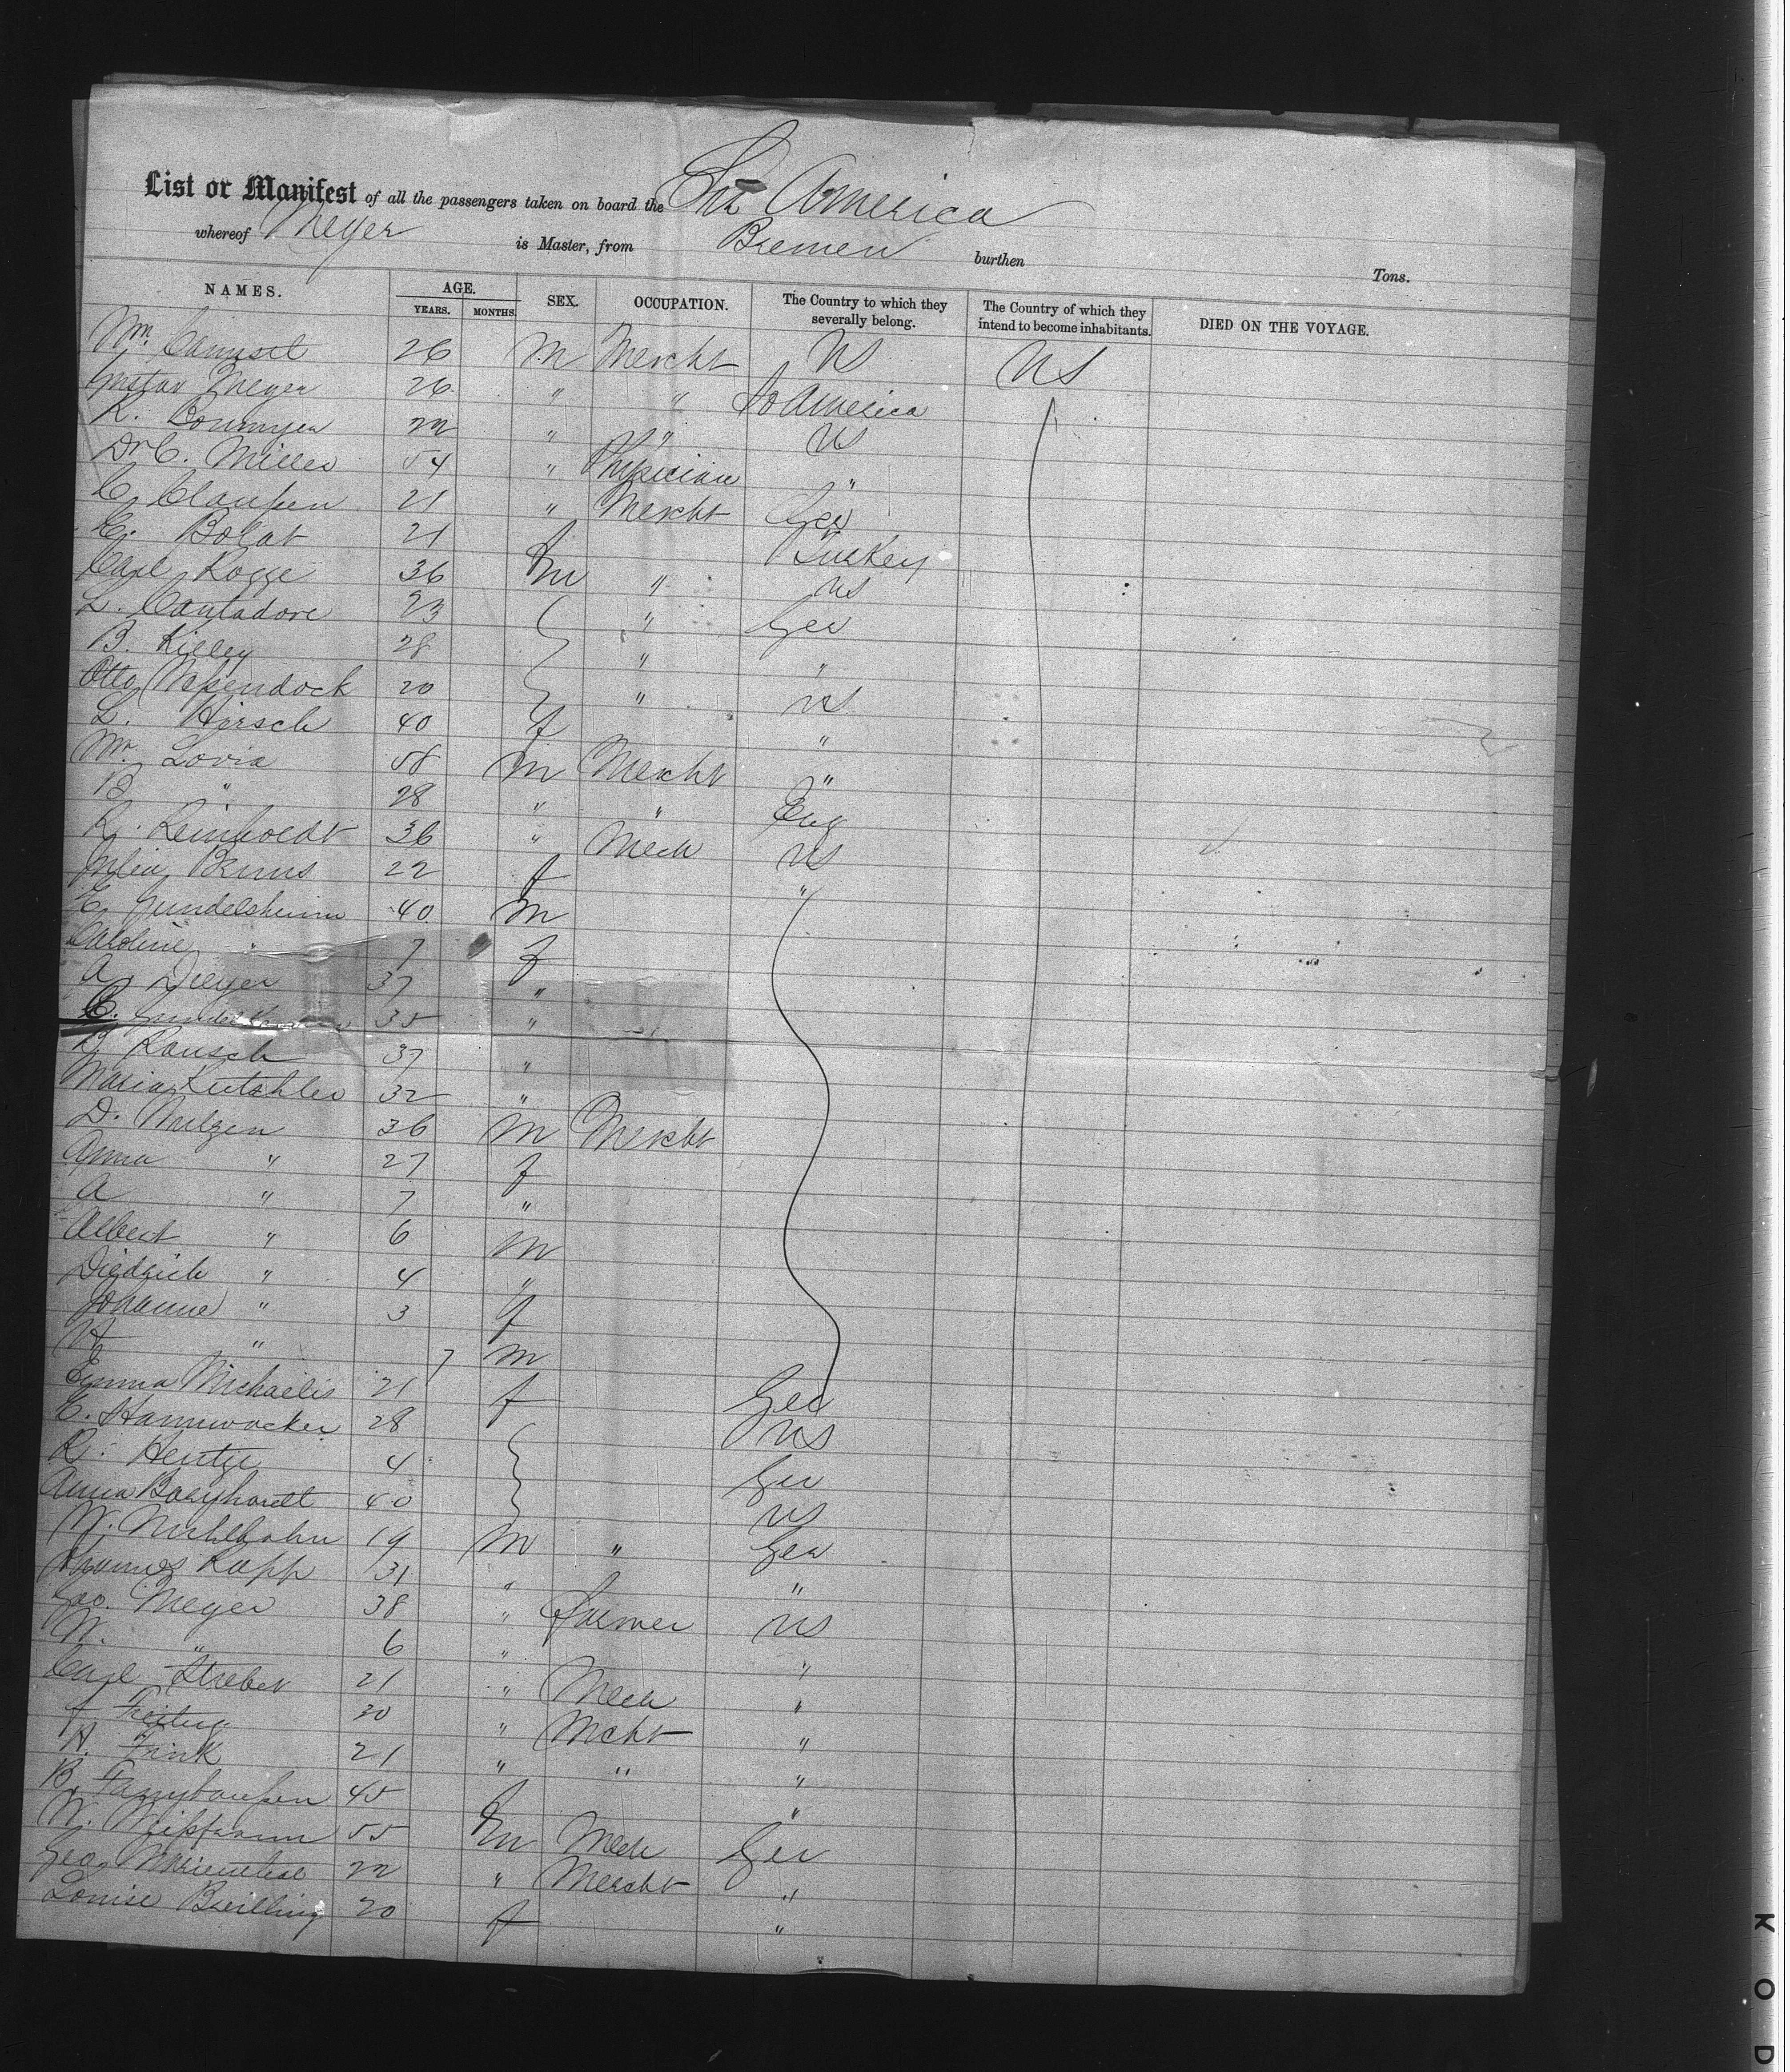 List or Manifest of all the passengers taken on board the Str America
whereof Meyer is Master, from Bremen burthen Tons.
NAMES. AGE. SEX. OCCUPATION. The Country to which they severally belong. The Country of which they intend to become inhabitants. DIED ON THE VOYAGE.
YEARS. MONTHS.
Wm. 26 m Mercht US US
Gustav Meyer 26 " " So America
R. 22 " " US
Dr C. Miller 54 " Physician "
C. Claussen 21 " Mercht Ger
E. Bolat 21 f Turkey
Carl Rogge 36 m " US
L. Cantadore 23 " Ger
B. Killey 28 " "
Otto 20 " US
L. Hirsch 40 f "
Mr. Lovia 58 m Mercht "
B " 28 " " Eng
R. Reinholdt 36 " Mech US
Julia Bruns 22 f "
E. Gundelsheim 40 m
Caroline " 7 f
A. Dreyer 37 "
C. 35 "
Rausch 37 "
Maria 32 "
D. Wulzen 36 m Mercht
Anna " 27 f
A " 7 "
Albert " 6 m
Diedrich " 4 "
Johanne " 3 f
H " 7 m
Emma Michaelis 21 f Ger
C. Hannwacker 28 US
R. Hentze 4 Ger
Anna Borghardt 40 US
W. Muhlhahn 19 m " Ger
Johannes Rapp 31 " "
Geo. Meyer 38 " Farmer US
W. " 6 " "
Carl Streber 21 " Mech "
F Freitag 30 " Mcht "
H. Frink 21 " " "
B. 45 f "
W. 55 m Mech Ger
Geo. Marienthal 22 " Mercht "
Louise Breilling 20 f "
KOD